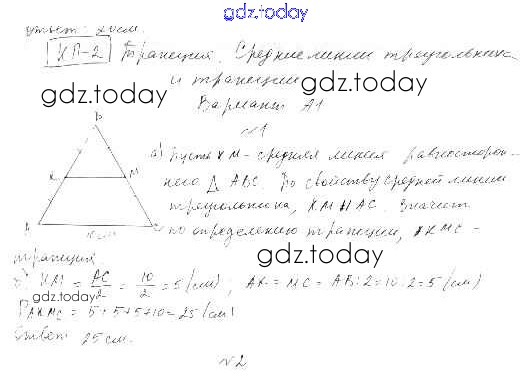 gdz.today
Ответ: 20 см.
КП-2 Трапеция. Средние линии треугольника
и трапеции
gdz.today
Вариант А1
№1
B
а) Пусть KM - средняя линия равносторон-
него Δ ABC. По свойству средней линии
K M
треугольника, KM || AC. Значит
A C
10 см
по определению трапеции, AKMC -
gdz.today
трапеция
б) KM = AC/2 = 10/2 = 5 (см); AK = MC = AB:2 = 10:2 = 5 (см)
gdz.today
P AKMC = 5+5+5+10 = 25 (см)
Ответ 25 см.
№2